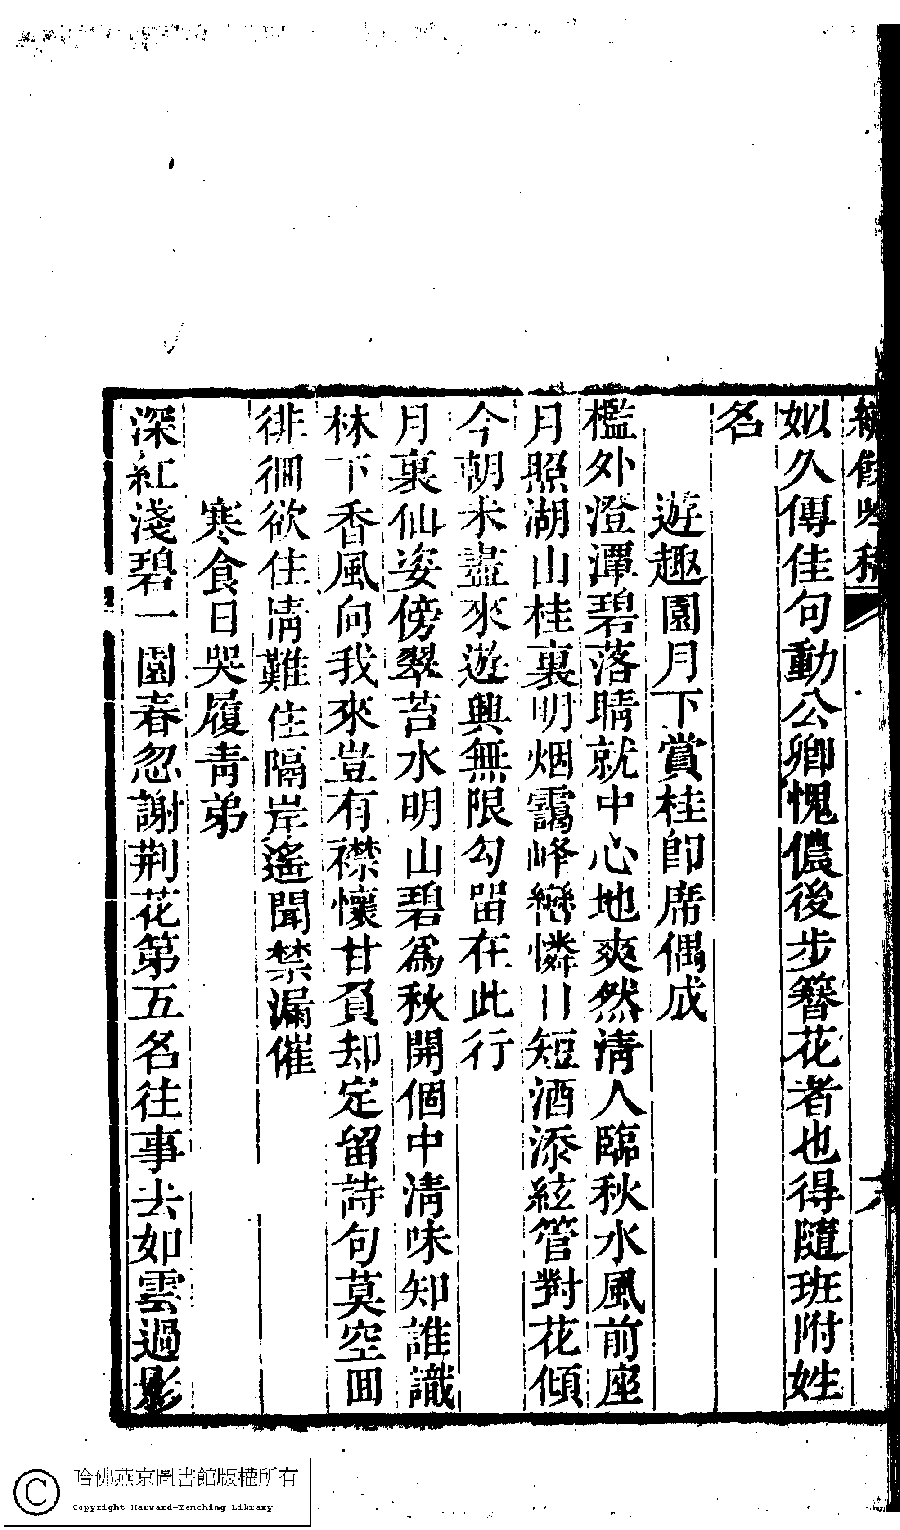 繡餘吟稿
六
姒久傳佳句動公卿愧儂後步簪花者也得隨班附姓
名
遊趣園月下賞桂卽席偶成
檻外澄潭碧落睛就中心地爽然淸人臨秋水風前座
月照湖山桂裏明烟靄峰巒憐日短酒添絃管對花傾
今朝未盡來遊興無限勾留在此行
月裏仙姿傍翠苔水明山碧爲秋開個中淸味知誰識
林下香風向我來豈有襟懷甘負却定留詩句莫空囬
徘徊欲住情難住隔岸遙聞禁漏催
寒食日哭履靑弟
深紅淺碧一園春忽謝荆花第五名往事去如雲過影
哈佛燕京圖書館版權所有
Copyright Harvard-Yenching Library